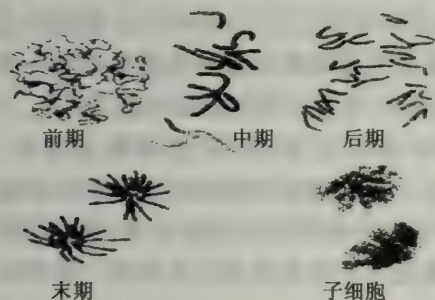 前期 中期 后期
末期 子细胞